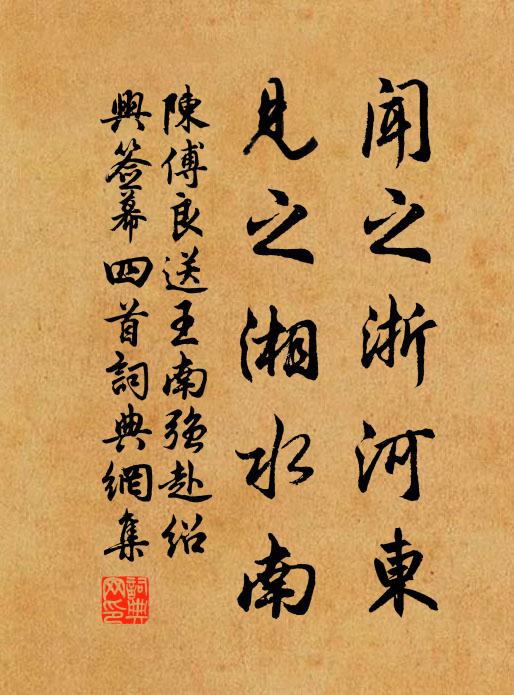 聞之浙河東
見之湘水南
陳傅良送王南强赴紹
興簽幕四首詞典網集
詞典網印